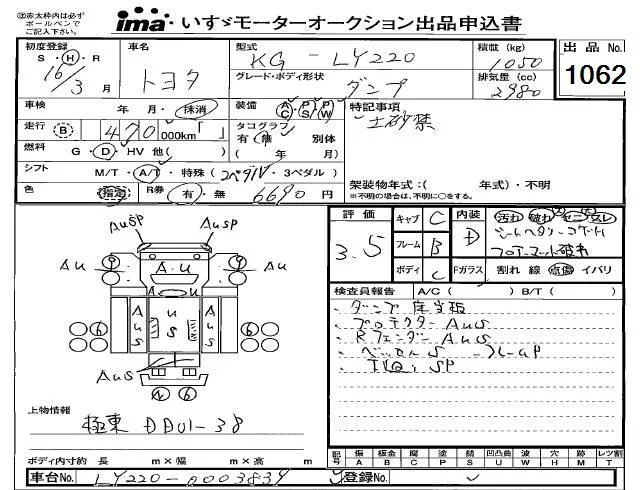 ㊟赤太枠内は必ず
ボールペンで
ご記入下さい。
ima いすゞモーターオークション出品申込書
初度登録 S・H・R 16年 3月
車名 トヨタ
型式 KG-LY220
グレード・ボディ形状 ダンプ
積載(kg) 1050
排気量(cc) 2980
出品 No. 1062
車検 年・月・抹消
装備 A/C P/S P/W
特記事項 土砂禁
走行 B 470,000km「 」
タコグラフ 有・無 別体
( 年 月)
燃料 G・D・HV 他( )
シフト M/T・A/T・特殊(2ペダル・3ペダル)
架装物年式:( 年式)・不明
※不明の場合は、年式に○をする。
色 指定
R券 有・無 6690円
評価 3.5
キャブ C
フレーム B
ボディ C
内装 D
汚れ 破れ コゲ スレ
Fガラス 割れ 線 点傷 イバリ
検査員報告 A/C( ) B/T( )
・ダンプ 床当板
・プロテクターAuS
・RフェンダーAuS
・ベッセルS
SP
AuSP
AuSP
Au
A・U
Au
AuS
上物情報
極東 DD01-38
ボディ内寸約 長 m×幅 m×高 m
記号 傷 A 板金 B 腐 C 塗 P 錆 S 凹凸曲 U 波 W 穴 H 跡 M レツ割 T
車台No. LY220-0003839
登録No.